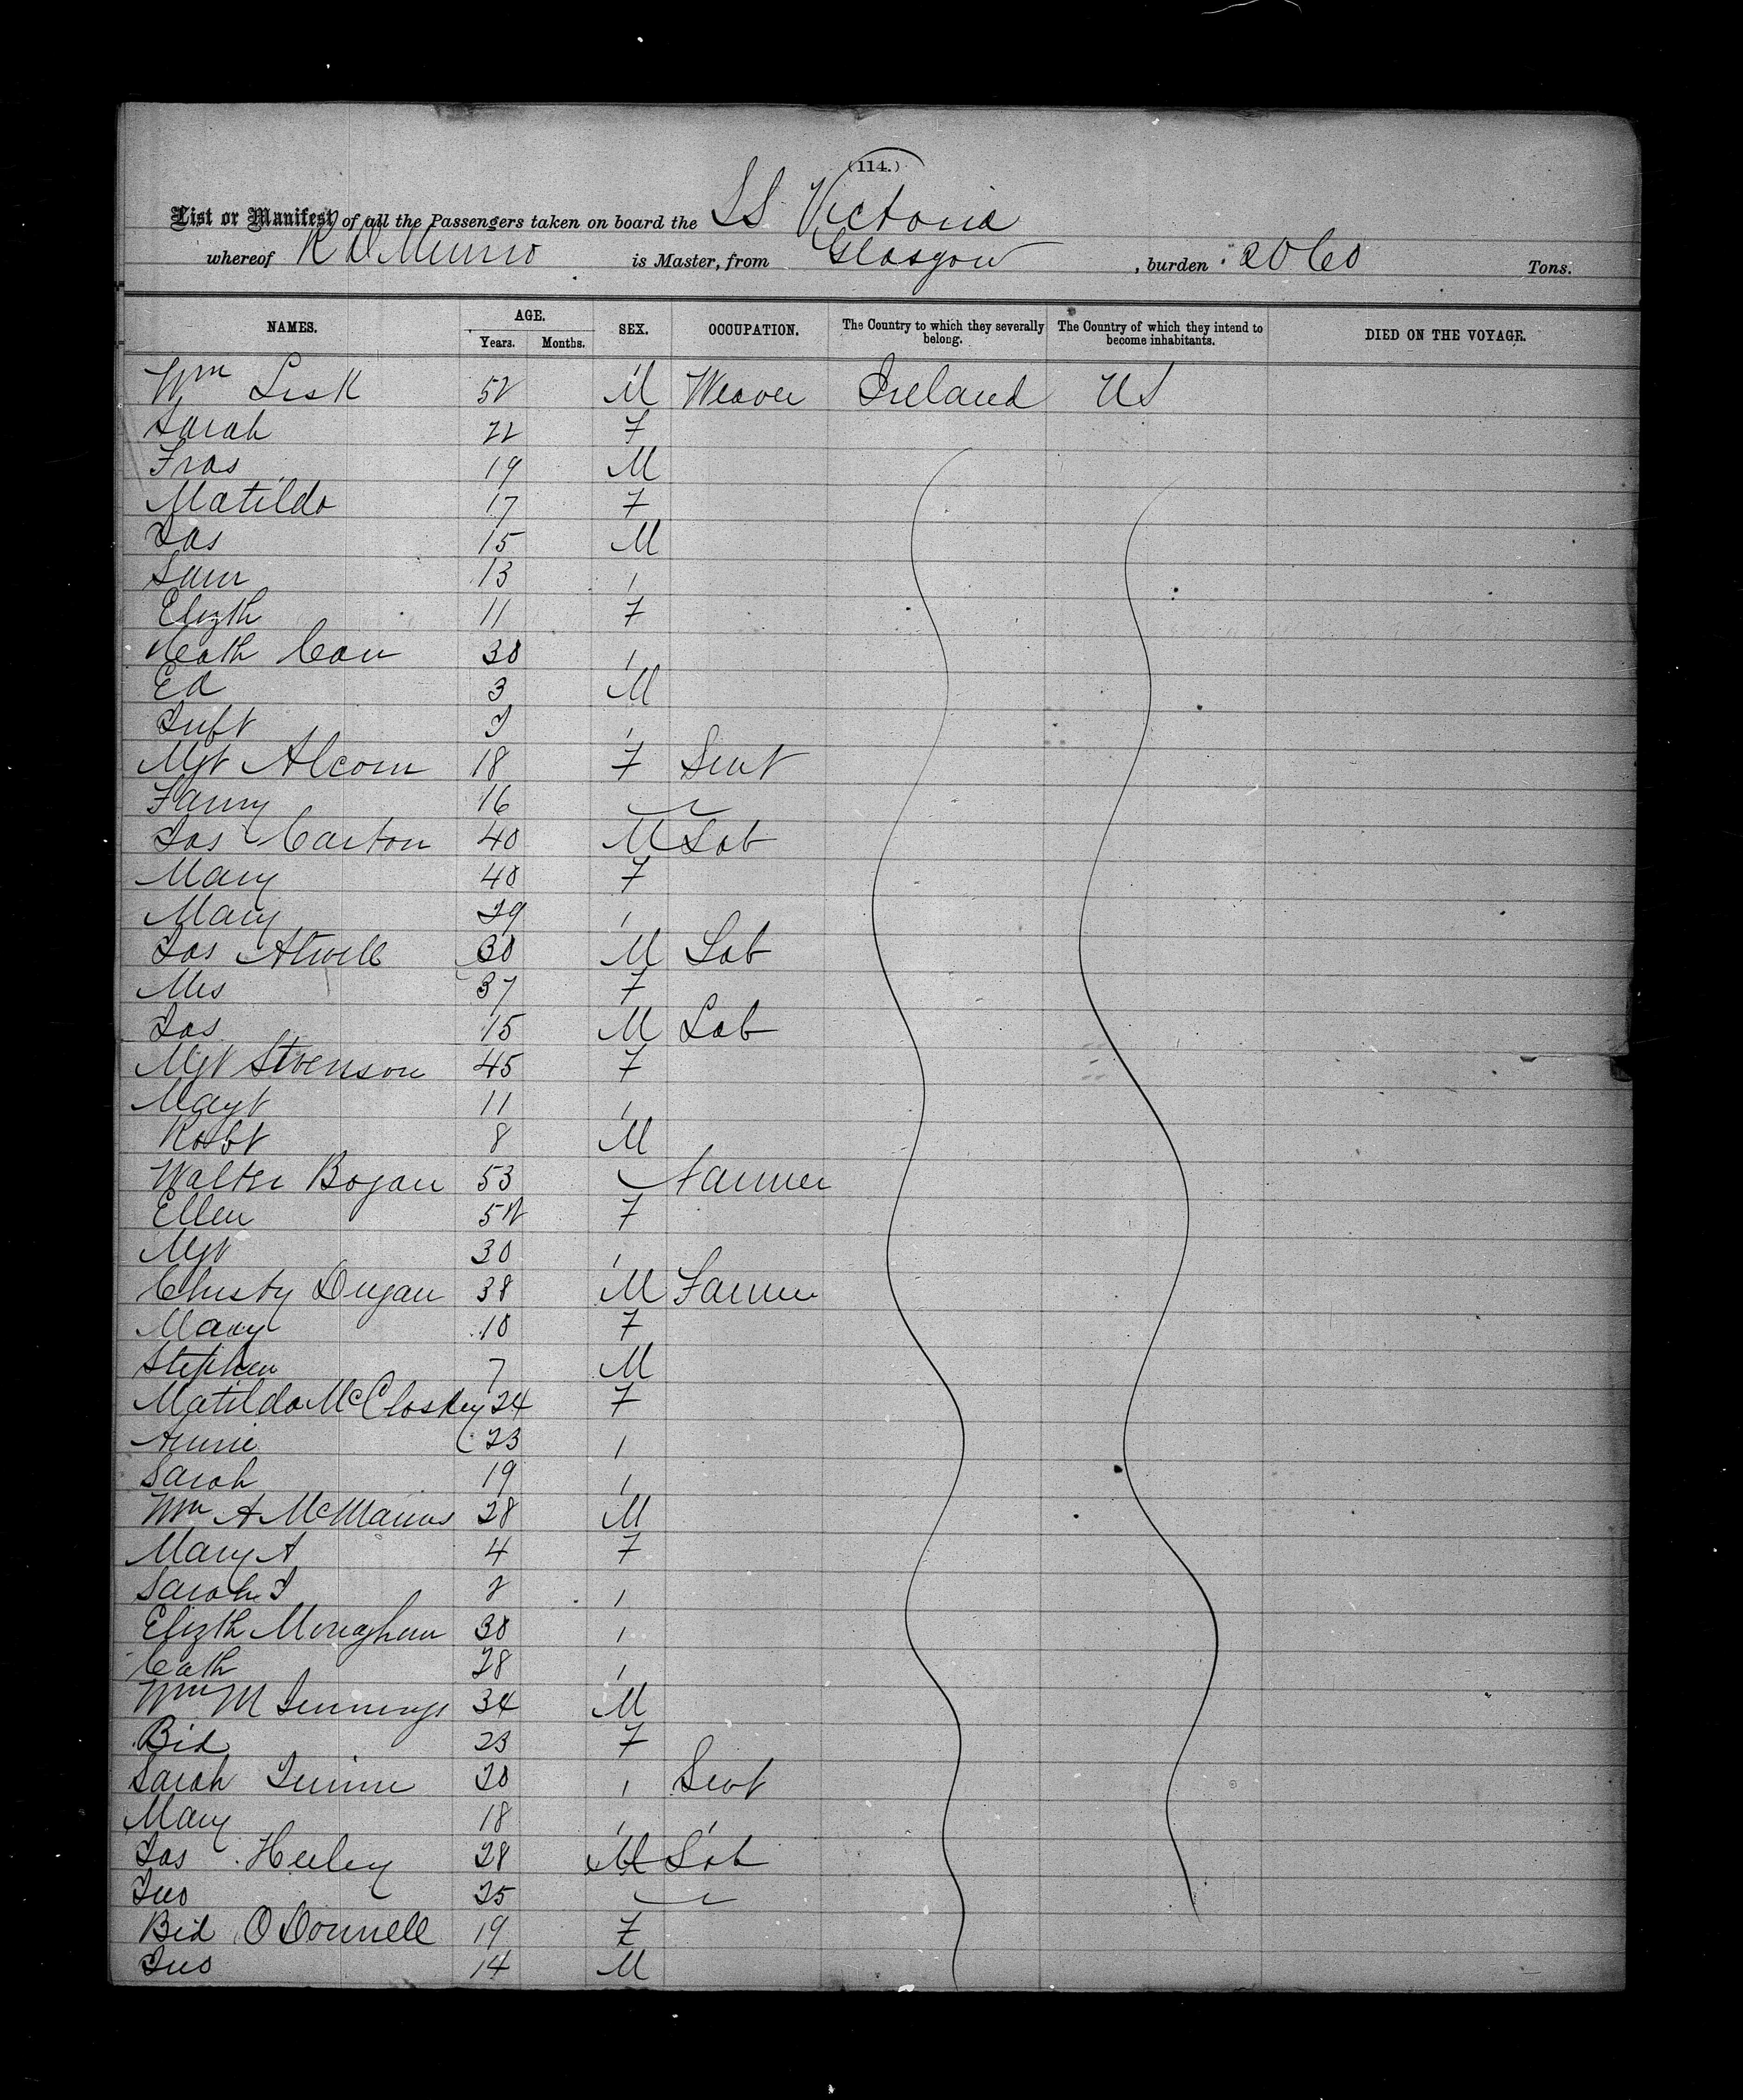 (114.)
List or Manifest of all the Passengers taken on board the SS Victoria
whereof R D Munro is Master, from Glasgow, burden 2060 Tons.
NAMES. AGE. Years. Months. SEX. OCCUPATION. The Country to which they severally belong. The Country of which they intend to become inhabitants. DIED ON THE VOYAGE.
Wm Lisk 52 M Weaver Ireland US
Sarah 22 F
Fras 19 M
Matilda 17 F
Jas 15 M
Sam 13 "
Elizth 11 F
Cath 30 "
Ed 3 M
Inft "
Mgt Alcorn 18 F Sevt
Fanny 16
Jas Carton 40 M Lab
Mary 40 F
Mary 29 "
Jas Atwell 30 M Lab
Mrs 37 F
Jas 15 M Lab
Mgt Stvenson 45 F
Magt 11 "
Robt 8 M
Walter Bogan 53 farmer
Ellen 52 F
Mgt 30 "
Christy Dugan 38 M Farmer
Mary 10 F
Stephen 7 M
Matilda McCloskey 24 F
Annie 23 "
Sarah 19 "
Wm A McManus 28 M
Mary A 4 F
Sarah J 2 "
Elizth Monaghan 30 "
Cath 28 "
Wm M Jennings 34 M
Bid 23 F
Sarah Quinn 20 " Sevt
Mary 18 " "
Jas Heeley 28 M Lab
Jno 25
Bid O Donnell 19 F
Jno 14 M